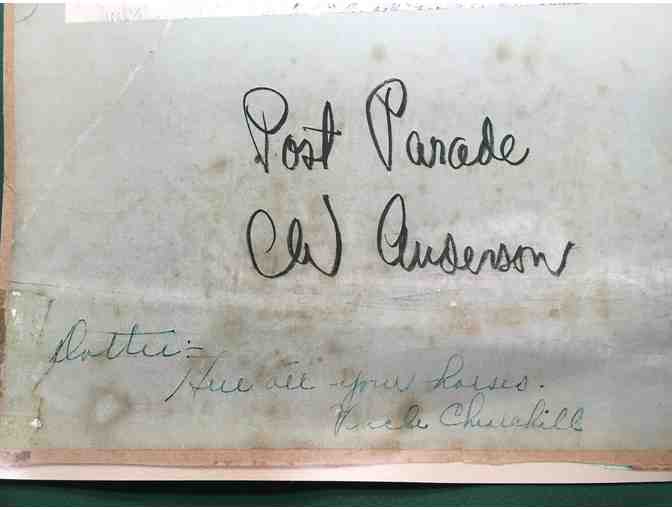 Post Parade
CW Anderson
Dottie:-
Here are your horses.
Uncle Churchill